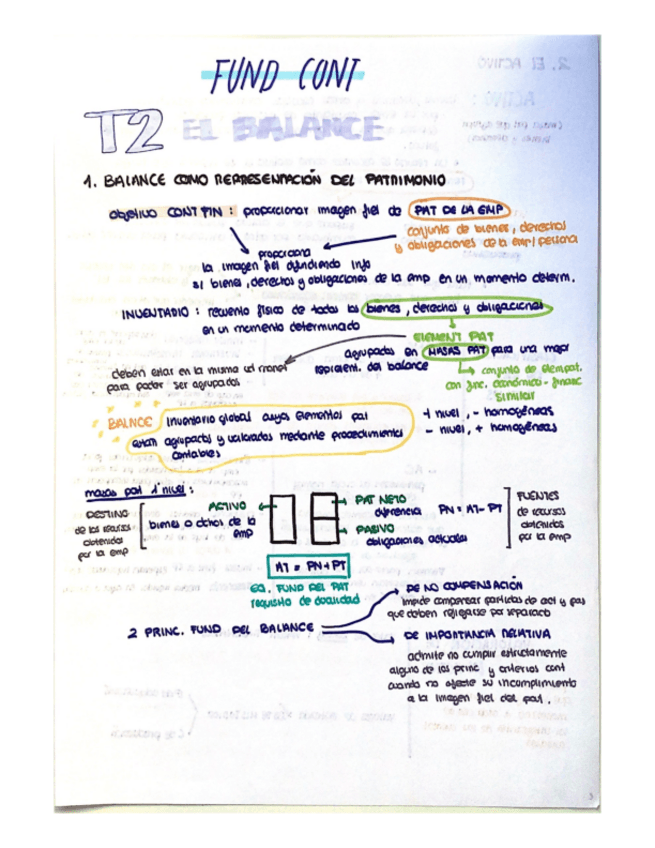 FUND CONT
T2 EL BALANCE
1. BALANCE COMO REPRESENTACIÓN DEL PATRIMONIO
objetivo CONT FIN : proporcionar imagen fiel de PAT DE LA EMP
conjunto de bienes, derechos
y obligaciones de la emp/ persona
proporciona
la imagen fiel difundiendo info
s/ bienes, derechos y obligaciones de la emp en un momento determ.
INVENTARIO : recuento físico de todos los bienes, derechos y obligaciones
en un momento determinado
ELEMENT PAT
agrupados en MASAS PAT para una mejor
represient. del balance
deben estar en la misma ud monet
para poder ser agrupados
conjunto de elempat.
con func. económico - financ
similar
BALNCE Inventario global cuyos elementos pat
estan agrupados y valorados mediante procedimientos
contables
+ nivel, - homogéneas
- nivel, + homogéneas
masas pat 1º nivel :
DESTINO
de los recursos
obtenidos
por la emp
ACTIVO
bienes o dchos de la
emp
PAT NETO
diferencia PN = AT - PT
PASIVO
obligaciones actuales
FUENTES
de recursos
obtenidos
por la emp
AT = PN + PT
EQ. FUND DEL PAT
requisito de dualidad
2 PRINC. FUND DEL BALANCE
DE NO COMPENSACIÓN
impide compensar partidas de act y pas
que deben reflejarse por separado
DE IMPORTANCIA RELATIVA
admite no cumplir estrictamente
alguno de los princ y criterios cont
cuando no afecte su incumplimiento
a la imagen fiel del pat.